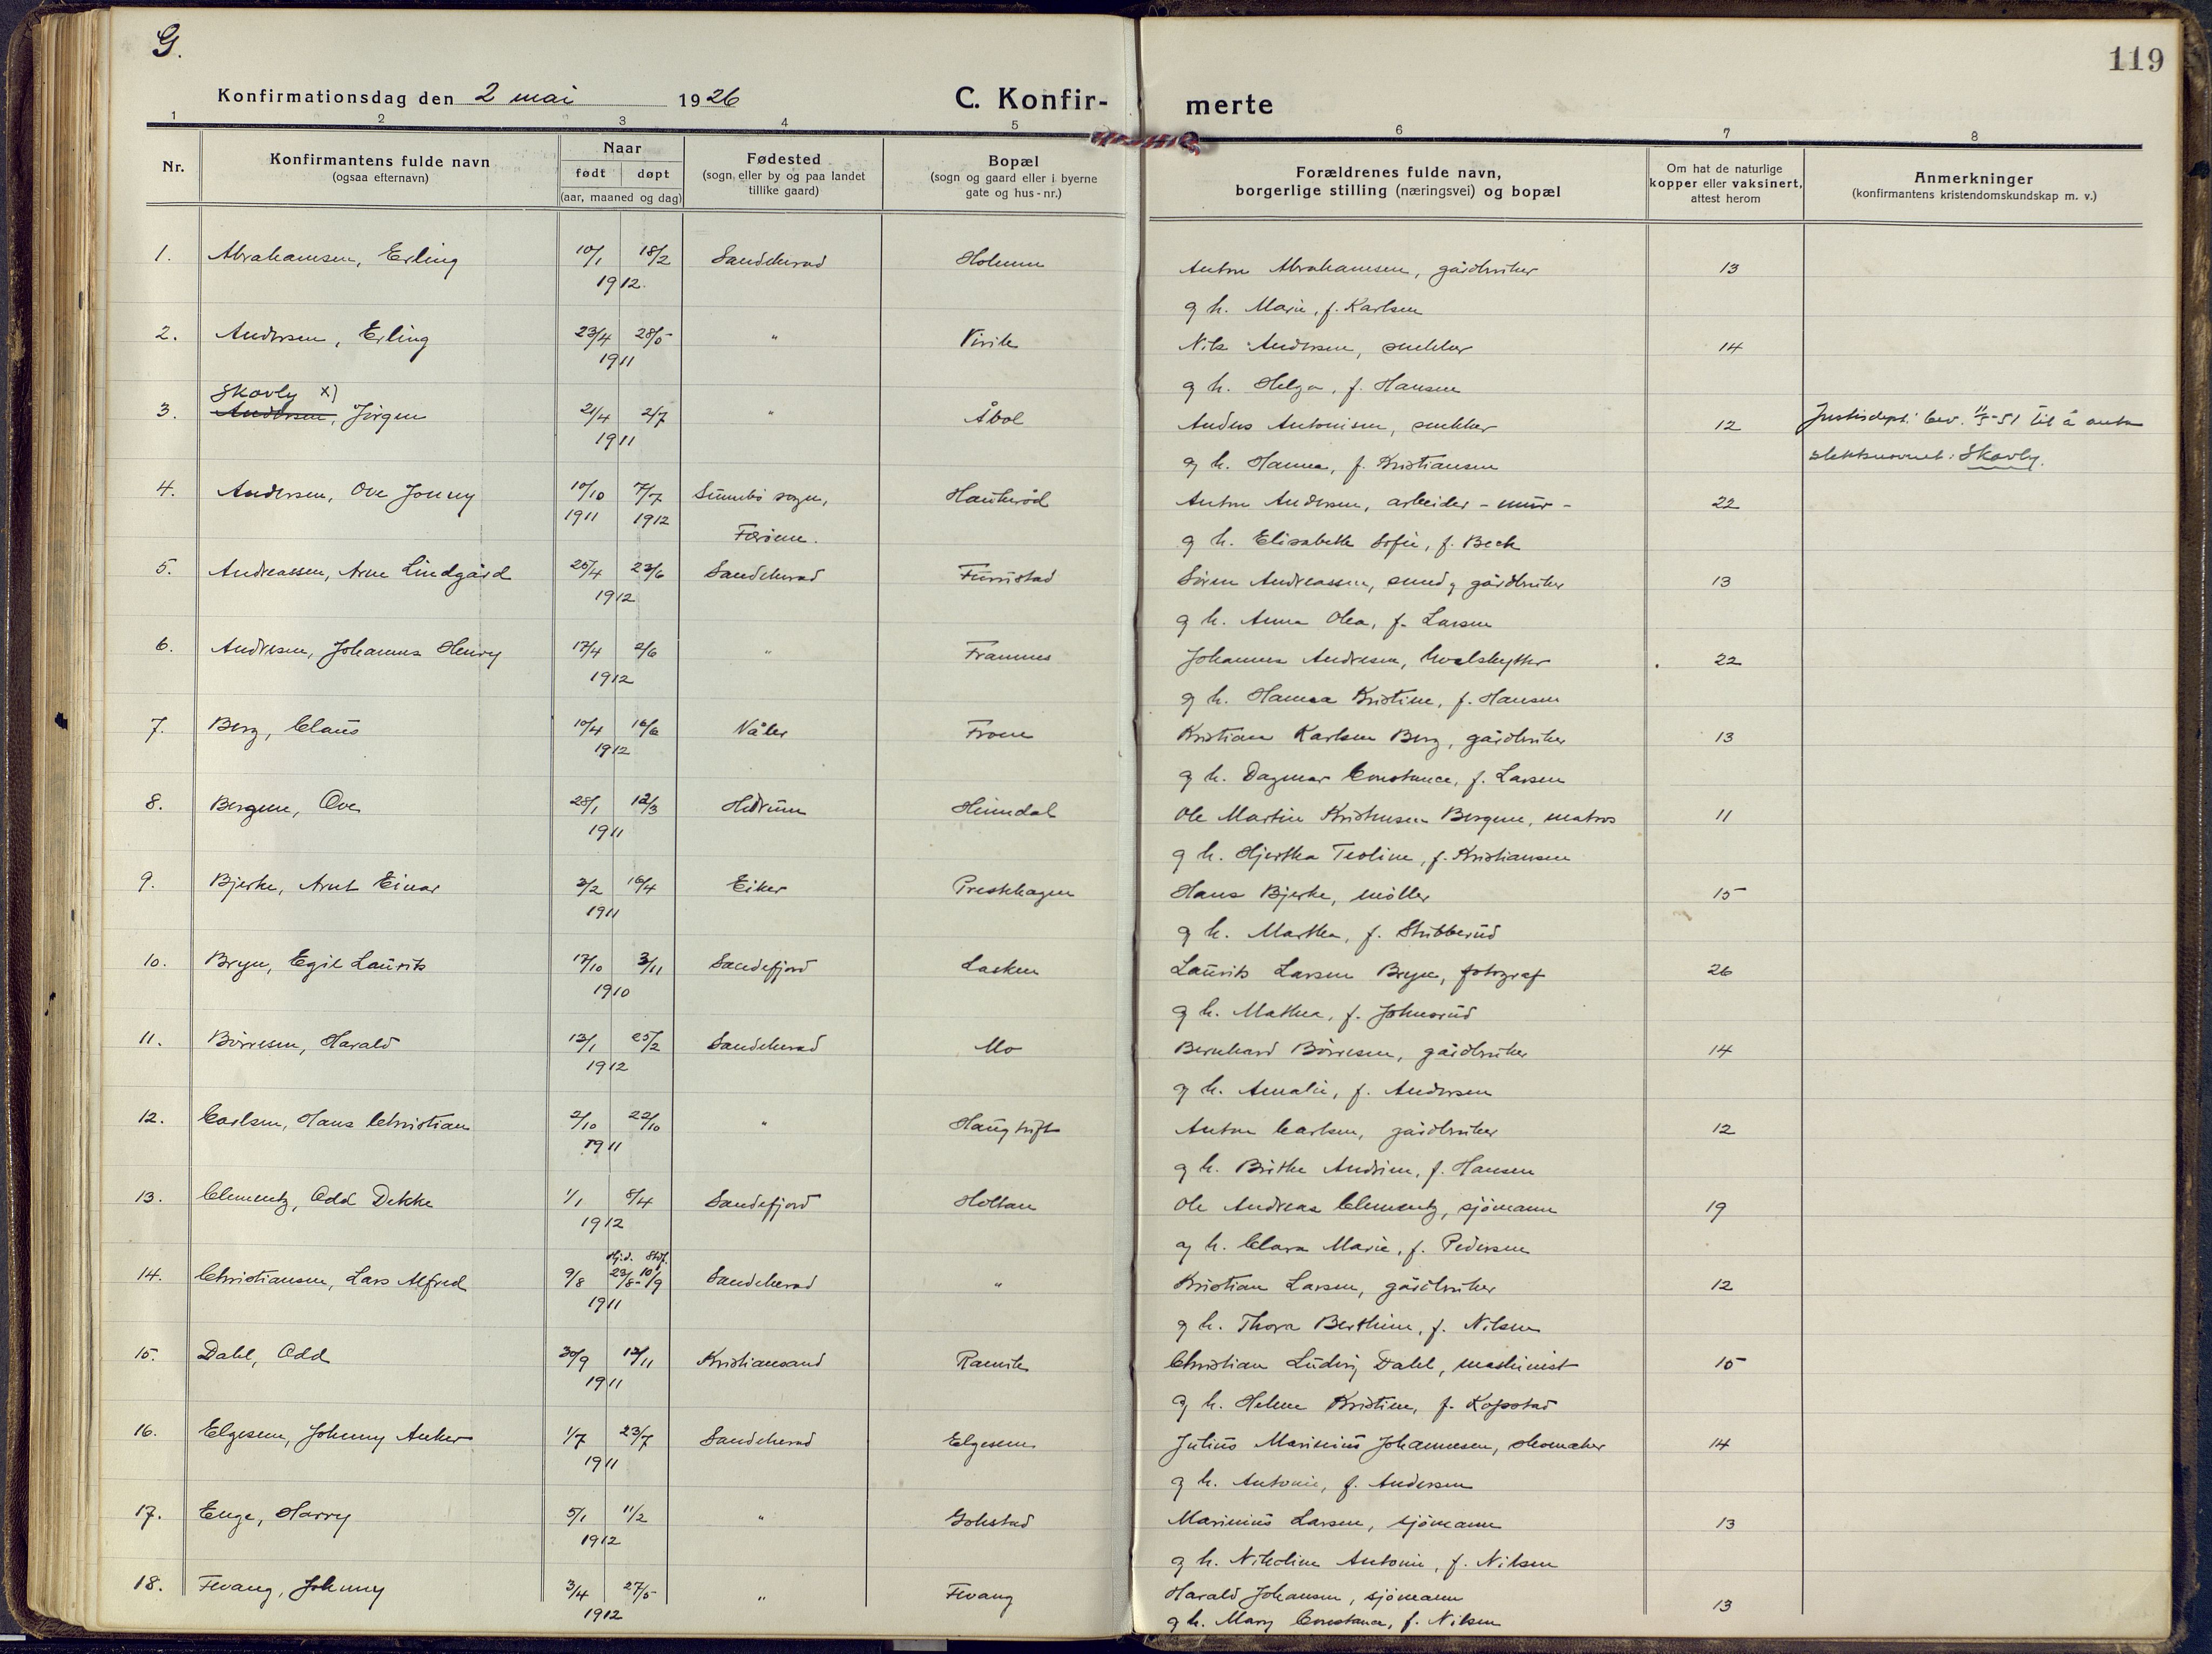 G.
119
Konfirmationsdag den 2 mai 1926
C. Konfir-
merte
1 2 3 4 5 6 7 8
Nr.
Konfirmantens fulde navn
(ogsaa efternavn)
Naar
født døpt
(aar, maaned og dag)
Fødested
(sogn eller by og paa landet
tillike gaard)
Bopæl
(sogn og gaard eller i byerne
gate og hus-nr.)
Forældrenes fulde navn,
borgerlige stilling (næringsvei) og bopæl
Om hat de naturlige
kopper eller vaksinert,
attest herom
Anmerkninger
(konfirmantens kristendomskundskap m. v.)
1. Abrahamsen, Erling 10/1 18/2 Sandeherad Holmen Anton Abrahamsen, gårdbruker 13
1912.
og h. Marie, f. Karlsen
2. Andersen, Erling 23/4 28/5 " Virik Nils Andersen, snekker 14
1911
og h. Helga, f. Hansen
Skovly x)
3. Andersen, Jörgen 21/4 2/7 " Åbol Anders Antonisen, snekker 12 Justisdept. bev. 11/5-51 til å anta
1911
og h. Hanna, f. Kristiansen slektsnavnet: Skovly.
4. Andersen, Ove Jonny 10/10 7/7 Sumbö sogn, Haukeröd Anton Andersen, arbeider - mur - 22
1911 1912
Færöene. og h. Elisabeth Sofie, f. Beck
5. Andreassen, Arne Lindgård 25/4 23/6 Sandeherad Furustad Sören Andreassen, smed og gårdbruker 13
1912
og h. Anna Olea, f. Larsen
6. Andresen, Johannes Henry 17/4 2/6 " Framnes Johannes Andresen, hvalskytter 22
1912
og h. Hanna Kristine, f. Hansen
7. Berg, Claus 10/4 16/6 Våler Froen Kristian Karlsen Berg, gårdbruker 13
1912
og h. Dagmar Constance, f. Larsen
8. Bergene, Ove 28/1 12/3 Hedrum Heimdal Ole Martin Kristensen Bergene, matros 11
1911
og h. Hjertha Teoline, f. Kristiansen
9. Bjerke, Arnt Einar 3/2 16/4 Eiker Prestehagen Hans Bjerke, möller 15
1911
og h. Marthe, f. Stubberud
10. Bryn, Egil Laurits 17/10 3/11 Sandefjord Lasken Laurits Larsen Bryn, fotograf 26
1910
og h. Mathea, f. Johnsrud
11. Börresen, Harald 13/1 25/2 Sandeherad Mo Bernhard Börresen, gårdbruker 14
1912
og h. Amalie, f. Andersen
12. Carlsen, Hans Christian 2/10 22/10 " Haugtuft Anton Carlsen, gårdbruker 12
1911
og h. Brithe Andrine, f. Hansen
13. Clementz, Odd Dekke 1/1 8/4 Sandefjord Holtan Ole Andreas Clementz, sjömann 19
1912
og h. Clara Marie, f. Pedersen
Hj.d. Stdf.
14. Christiansen, Lars Alfred 9/8 23/8-10/9 Sandeherad " Kristian Larsen, gårdbruker 12
1911
og h. Thora Berthine, f. Nilsen
15. Dahl, Odd 30/9 12/11 Kristiansand Ranvik Christian Ludvig Dahl, maskinist 15
1911
og h. Helene Kristine, f. Kopstad
16. Elgesem, Johnny Anker 1/7 23/7 Sandeherad Elgesem Julius Marinius Johannesen, skomaker 14
1911
og h. Antonie, f. Andersen
17. Enge, Harry 5/1 11/2 " Gokstad Marinius Larsen, sjömann 13
1912
og h. Nikoline Antonie, f. Nilsen
18. Fevang, Johnny 3/4 27/5 " Fevang Harald Johansen, sjömann 13
1912
og h. Mary Constance, f. Nilsen